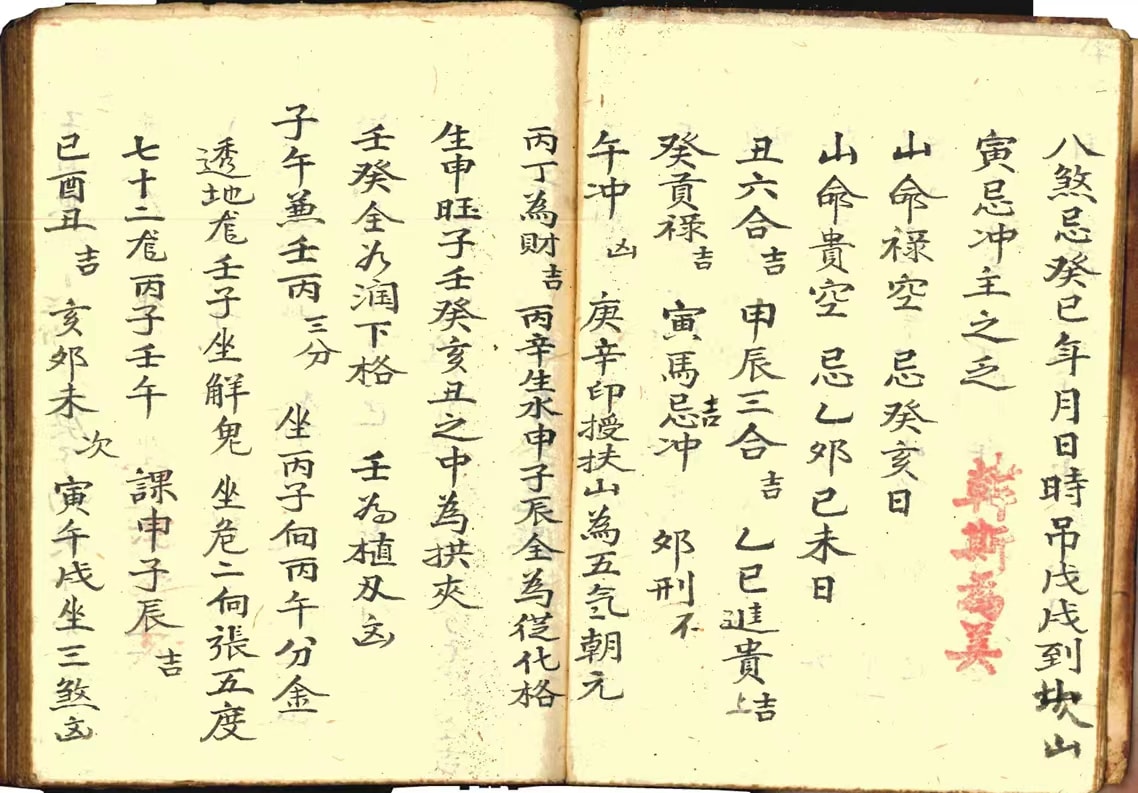 八煞忌癸巳年月日時吊戊戌到坎山
寅忌冲主之乏
斯為美
山命禄空 忌癸亥日
山命貴空 忌乙卯已未日
丑六合吉 申辰三合吉 乙巳進貴上吉
癸貢禄吉 寅馬忌冲吉 卯刑不
午冲凶 庚辛印授扶山為五气朝元
丙丁為財吉 丙辛生水申子辰全為從化格
生申旺子壬癸亥丑之中為拱夾
壬癸全为润下格 壬為植刄凶
子午兼壬丙三分 坐丙子向丙午分金
透地龙壬子坐解鬼 坐危二向張五度
七十二龙丙子壬午 課申子辰吉
已酉丑吉 亥卯未次 寅午戌坐三煞凶